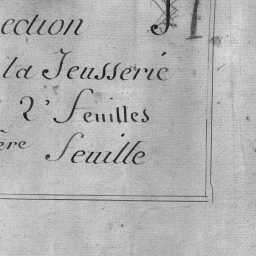 ection J
la Jeusserie
2e Feuilles
ère Feuille